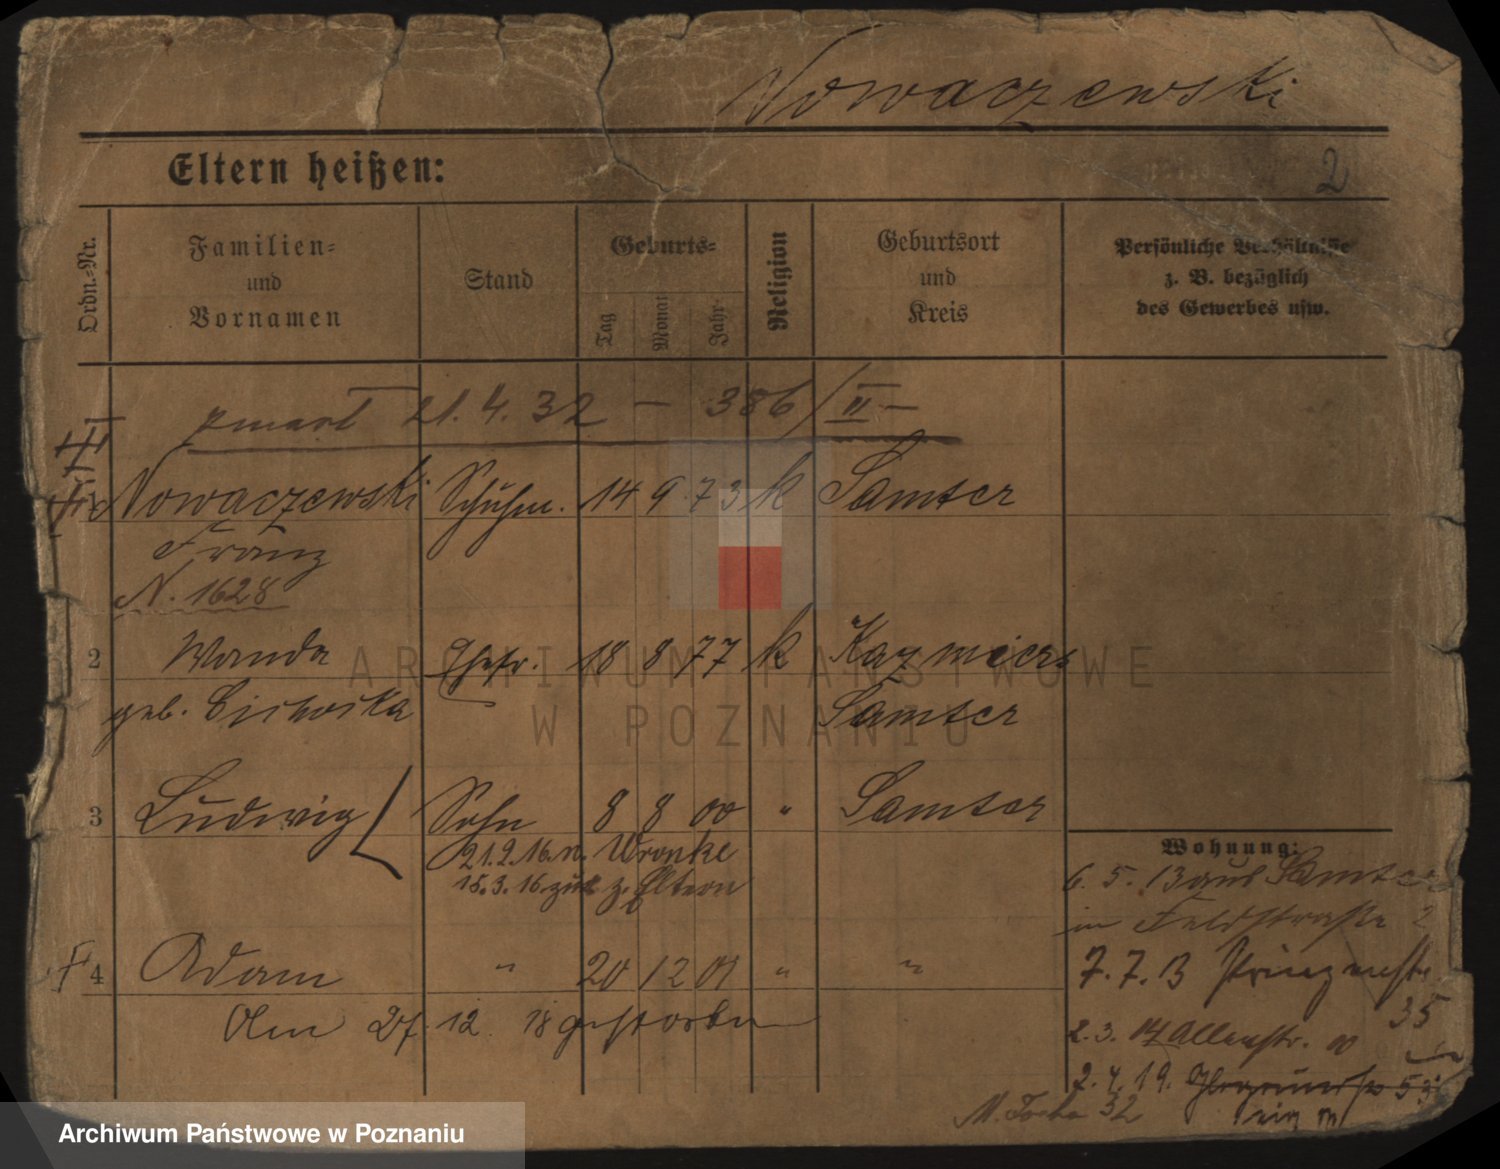 Nowaczewski
Eltern heißen:
2
Ordn.-Nr.
Familien-
und
Vornamen
Stand
Geburts-
Tag
Monat
Jahr
Religion
Geburtsort
und
Kreis
Persönliche Verhältnisse
z. B. bezüglich
des Gewerbes usw.
zmarł 21. 4. 32 — 386/II —
Nowaczewski Schuhm. 14 9. 73 k Samter
Franz
N. 1628
2 Wanda Ehefr. 18 8 77 k Kazmierz
geb. Cichocka Samter
3 Ludwig Sohn 8 8 00 " Samter
21.2.16. n. Wronke
15.3.16. zur z. Eltern
4 Adam " 20 12 01 " "
Am 27. 12. 18 gestorben
Wohnung:
6. 5. 13 aus Samter
in Feldstraße 2
7. 7. 13 Prinzenstr.
35
2. 3. 14 Allee
2. 4. 19.
53
32
ARCHIWUM PAŃSTWOWE
W POZNANIU
Archiwum Państwowe w Poznaniu